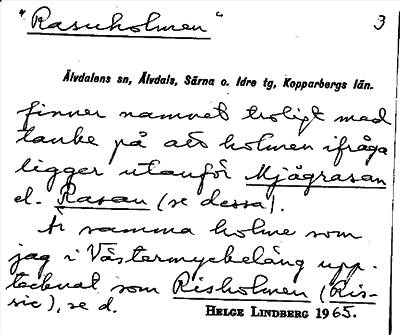 "Rasuholmen" 3
Älvdalens sn, Älvdals, Särna o. Idre tg, Kopparbergs län.
finner namnet troligt med
tanke på att holmen ifråga
ligger utanför Mjågrasan
el. Rasan (se dessa).
Är samma holme som
jag i Västermyckeläng upp-
tecknat som Risholmen (Ris-
sie), se d.
HELGE LINDBERG 1965.